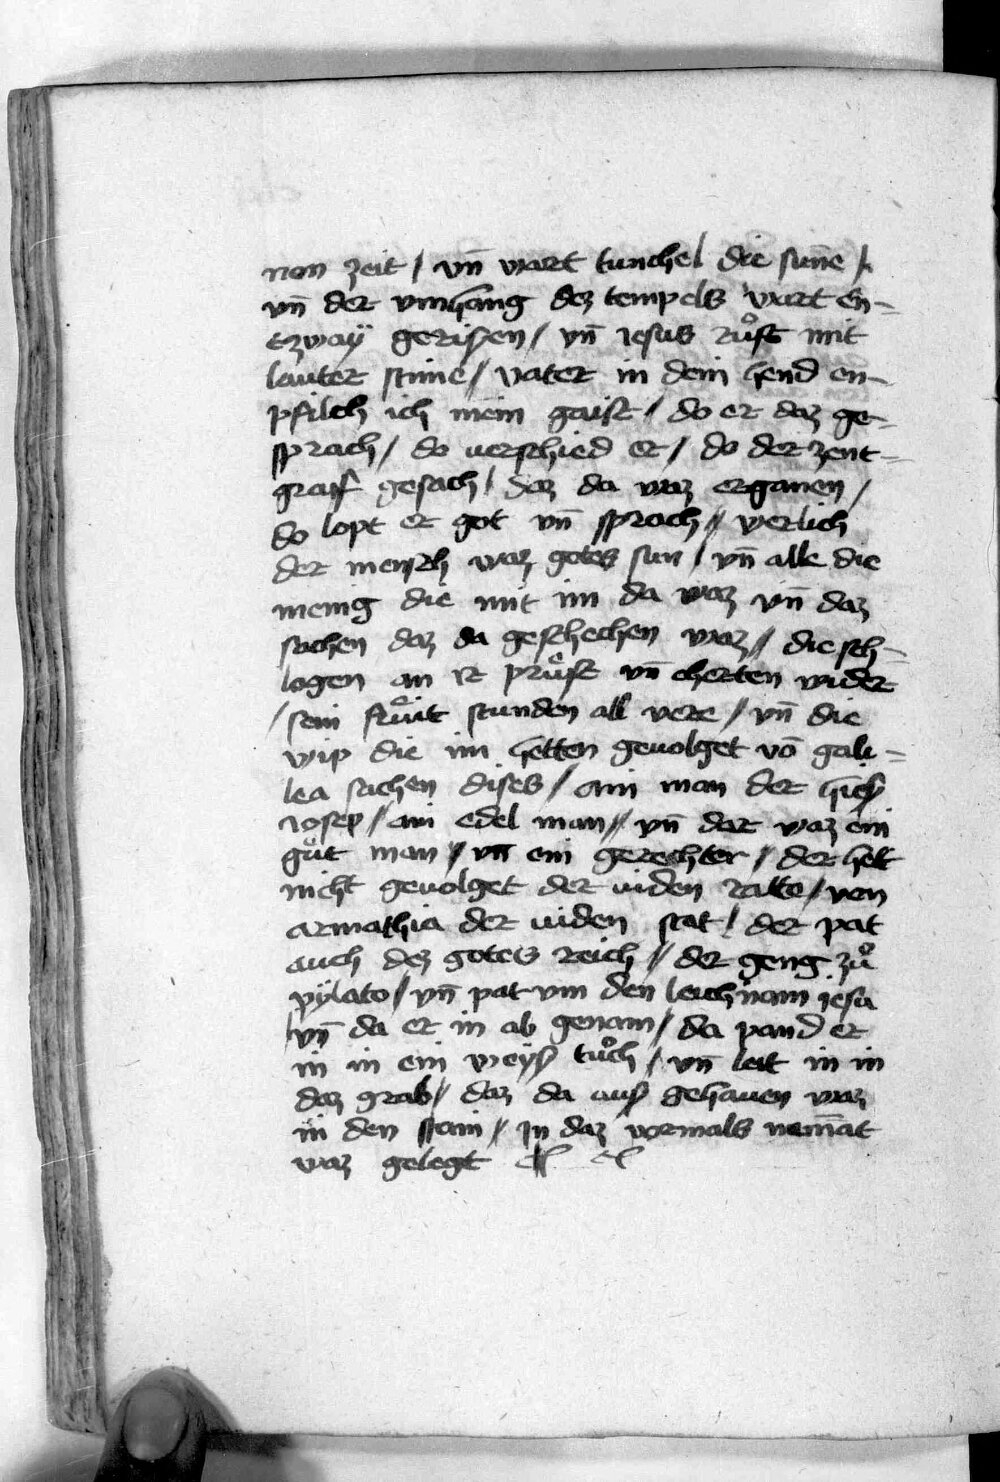 non zeit / vn̄ wart tunchel die sunne /
vn̄ der vmhang dez tempels wart en-
tzway gerissen / vn̄ iesus růft mit
lauter stime // vater in dein hend en-
pfilch ich mein gaist / do er daz ge-
sprach / do uerschied er / do der zent-
graf gesach / daz da waz ergangen /
do lopt er got vn̄ sprach // werlich
der mensch waz gotes sun / vn̄ alle die
menig die mit im da waz vn̄ daz
sachen daz da geschechen waz // die sch-
logen an ir průst vn̄ cherten wider
/ sein frůnt stunden all verre / vn̄ die
wip die im hetten geuolget vō gali-
lea sachen dises / ain man der hies
iosep / ain edel man // vn̄ dar waz ein
gůt man // vn̄ ein gerechter // der hett
nicht geuolget der iuden ratte / von
armathia der iuden stat / der pat
auch dez gotes reich // der geng zů
pÿlato // vn̄ pat vm den leichnam iesu
/ vn̄ da er in ab genam // da pand er
in in ein weiß tůch / vn̄ leit in in
daz grab // daz da auß gehauen waz
in den stain // in daz vormals niem̄at
waz gelegt